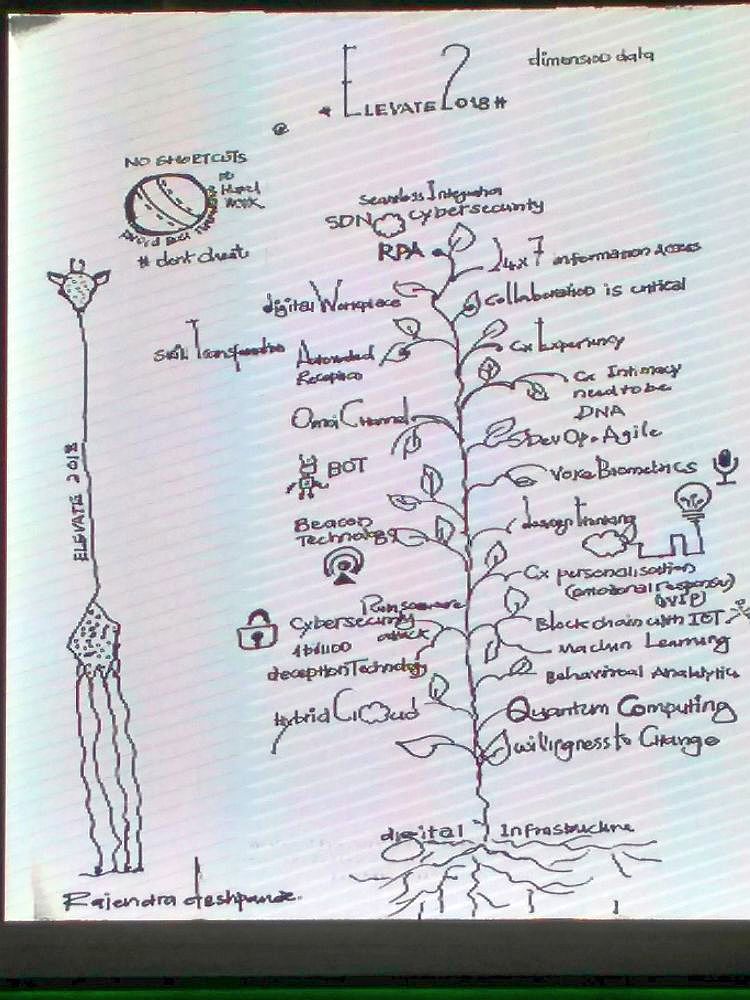 dimension data
* ELEVATE 2018 #
NO SHORTCUTS
to
Hard
Work
# dont cheat
Seamless Integration
SDN Cybersecurity
RPA
24x7 information access
digital Workplace
Collaboration is critical
Skill Transformation
Cx Experiency
Automated
Reception
Cx Intimacy
need to be
DNA
Omni Channel
DevOp. Agile
BOT
Voice Biometrics
ELEVATE 2018
Beacon
Technology
design thinking
Cx personalisation
(emotional response)
(VIP)
Ransomware
Cybersecurity
attack
Block chain with IOT
Machin Learning
deception Technology
Behavioral Analytics
Hybrid Cloud
Quantum Computing
willingness to Change
digital Infrastructure
Rajendra deshpande.